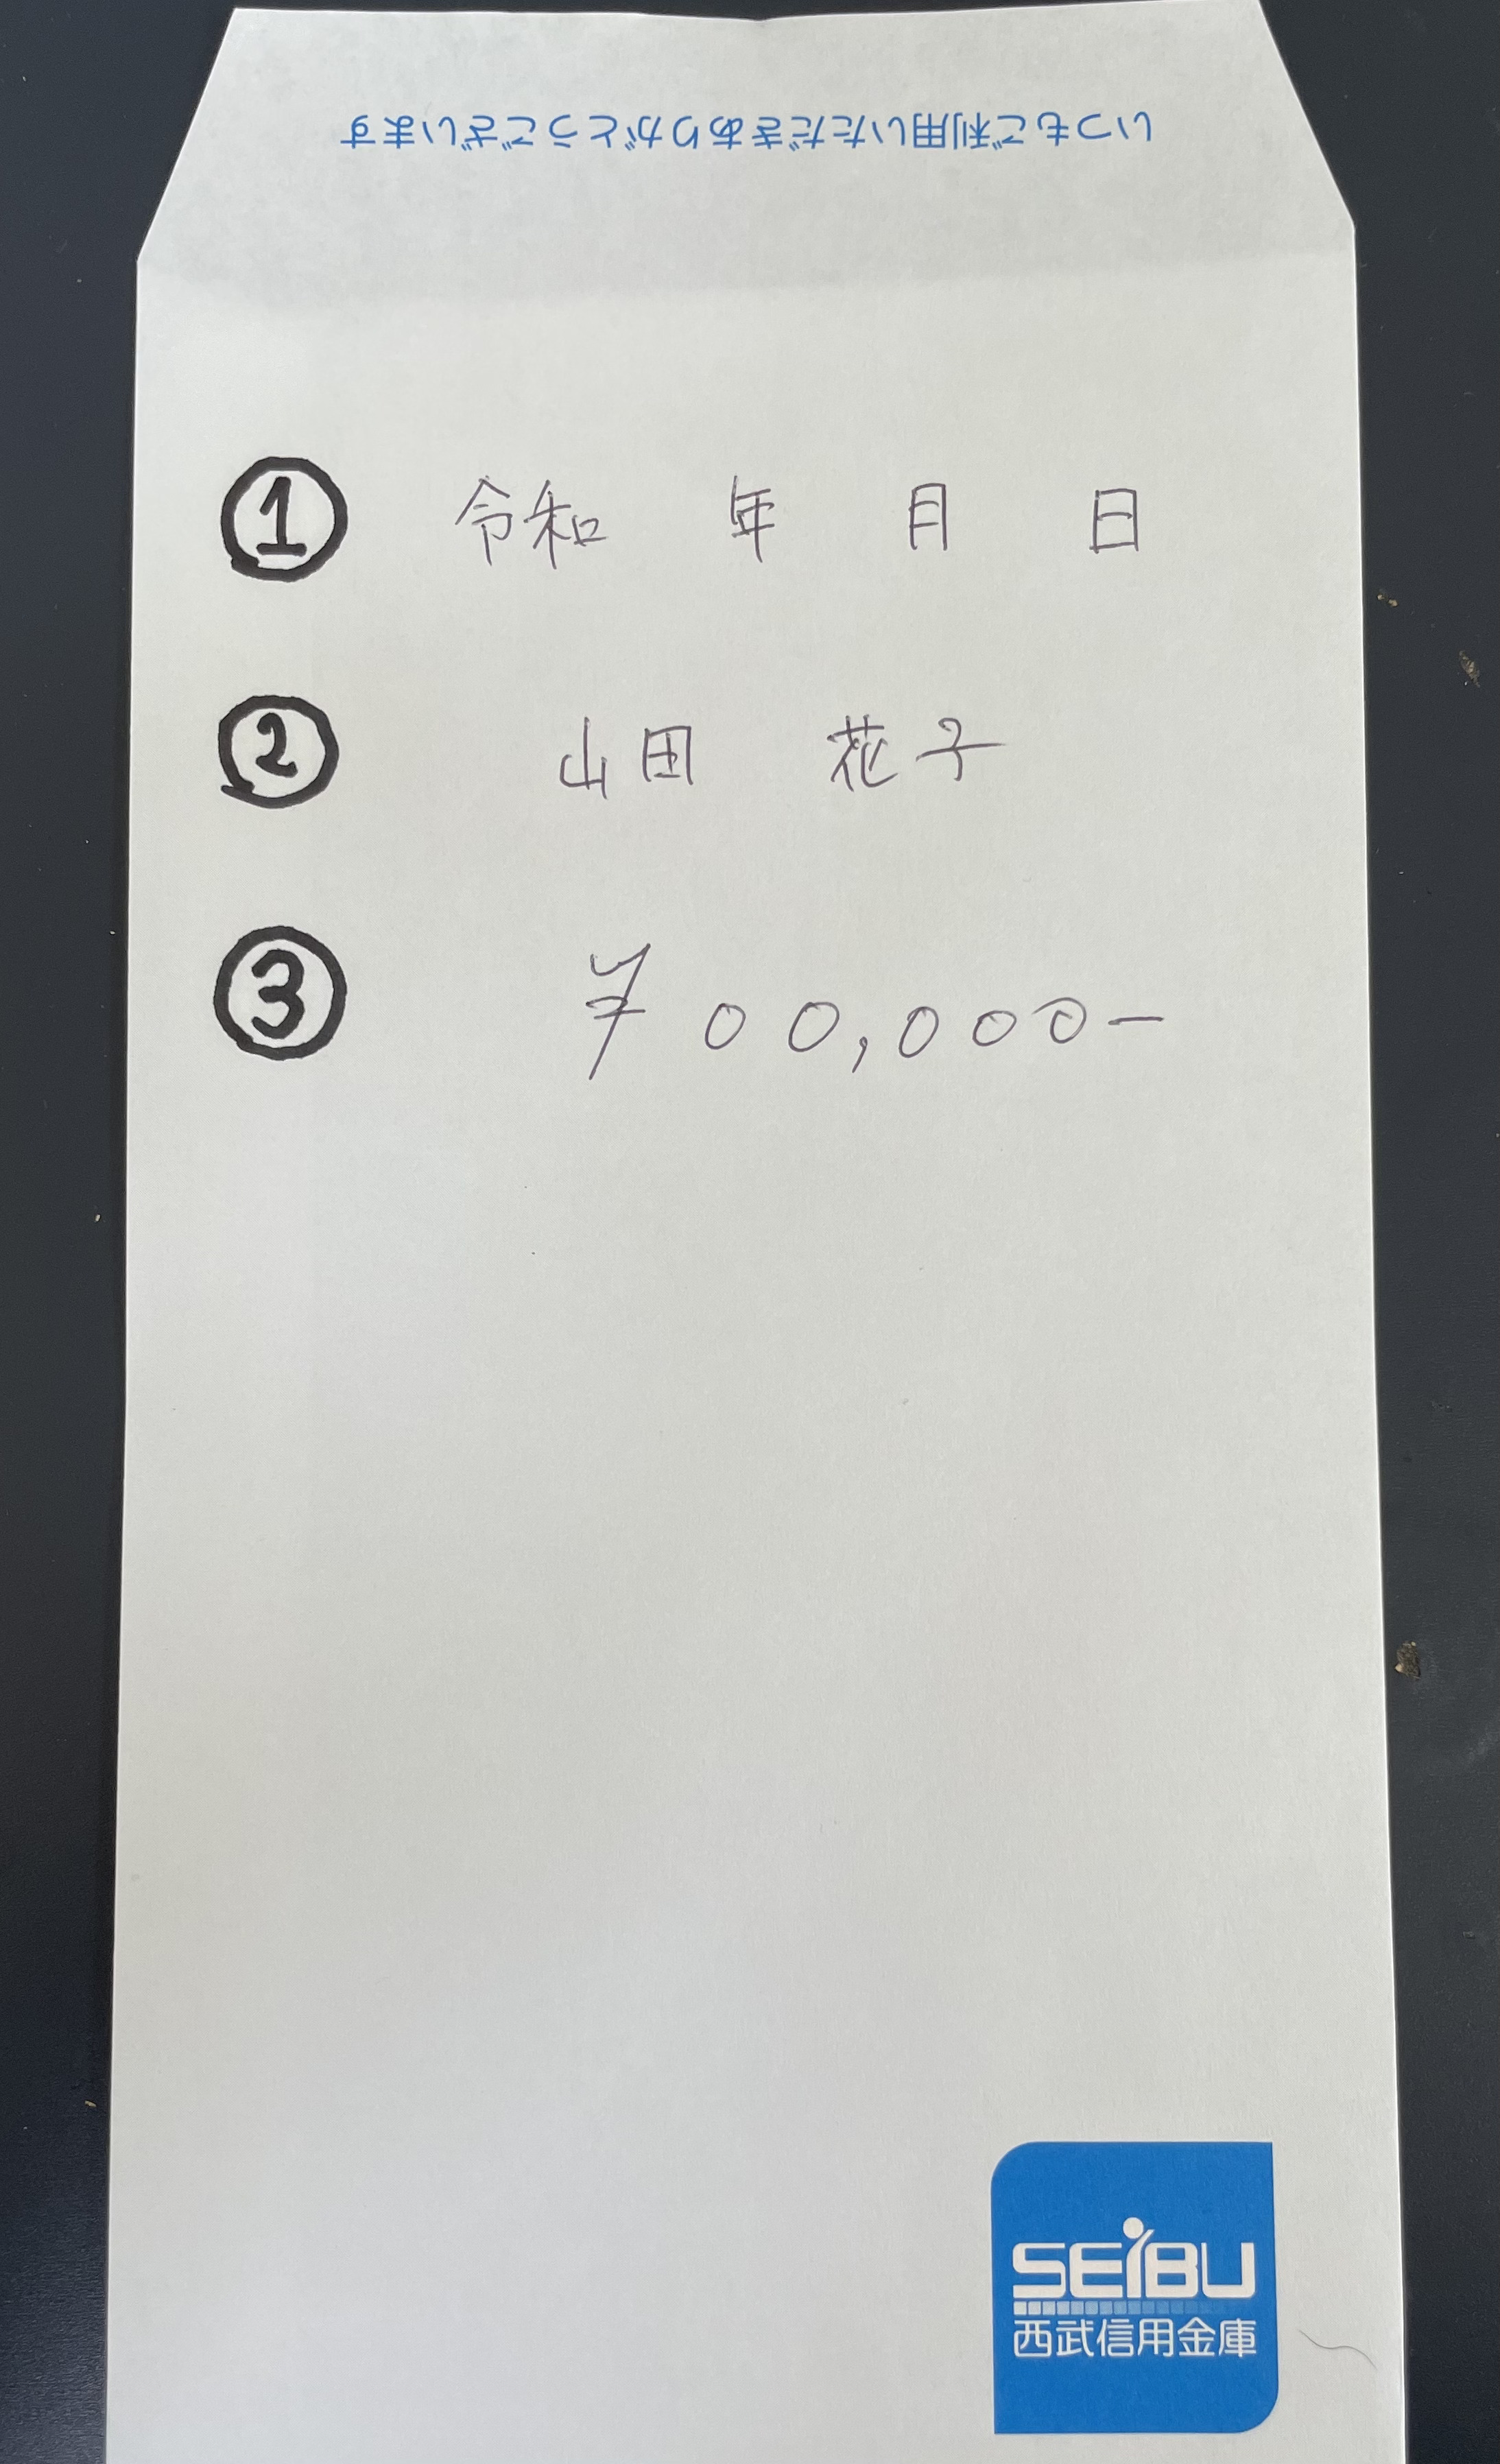 いつもご利用いただきありがとうございます
① 令和 年 月 日
② 山田 花子
③ ¥00,000-
SEiBU
西武信用金庫